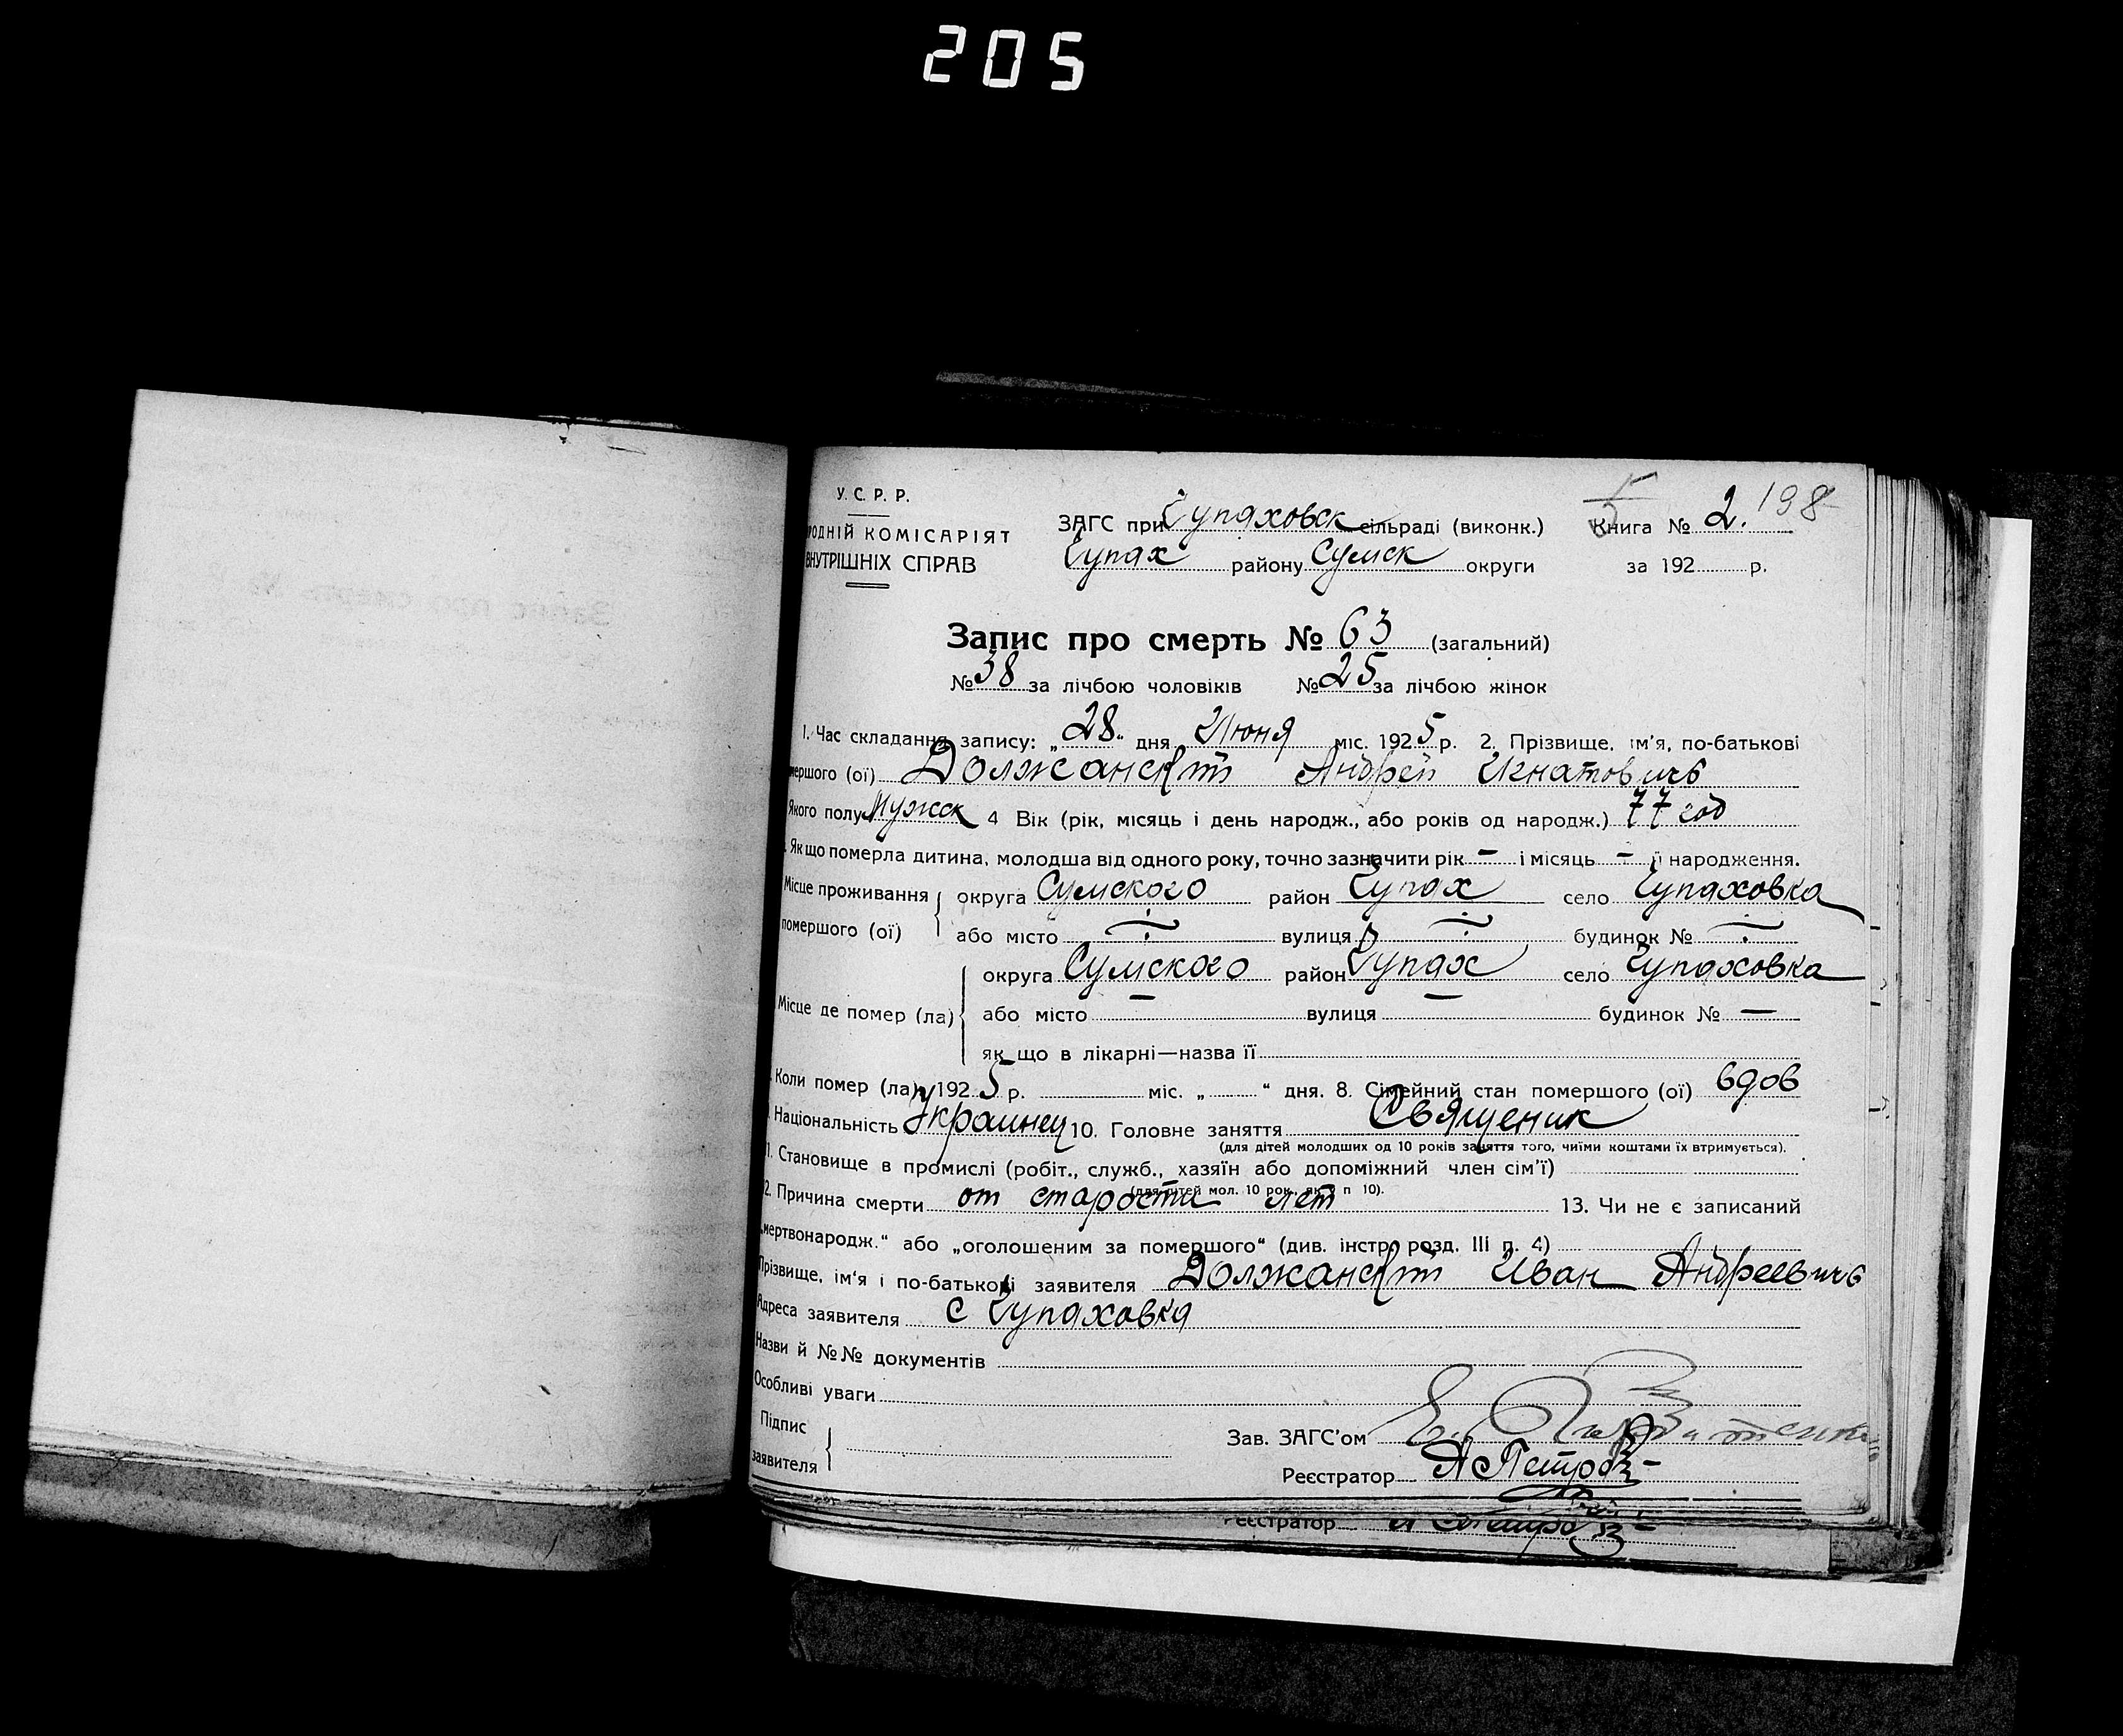 205
У. С. Р. Р.
РОДНІЙ КОМІСАРІЯТ
ВНУТРІШНІХ СПРАВ
ЗАГС при Чупаховск сільраді (виконк.) Книга № 2. 198
Чупах району Сумск округи за 192 р.
Запис про смерть № 63 (загальний)
№ 38 за лічбою чоловіків № 25 за лічбою жінок
1. Час складання запису: „28“ дня Июня міс. 1925 р. 2. Прізвище, ім'я, по-батькові
мершого (ої) Должанский Андрей Игнатович
Якого полу Мужск 4 Вік (рік, місяць і день народж., або років од народж.) 77 год
Як що померла дитина, молодша від одного року, точно зазначити рік — і місяць — її народження.
Місце проживання округа Сумского район Чупах село Чупаховка
помершого (ої) або місто вулиця будинок №
округа Сумского район Чупах село Чупаховка
Місце де помер (ла) або місто — вулиця — будинок № —
як що в лікарні—назва її
Коли помер (ла) 1925 р. міс. „ “ дня. 8. Сімейний стан помершого (ої) вдов
Національність Украинец 10. Головне заняття Священик
(для дітей молодших од 10 років заняття того, чиїми коштами їх втримується).
1. Становище в промислі (робіт., служб., хазяїн або допоміжний член сім'ї)
(для дітей мол. 10 рок., як в п 10).
2. Причина смерти от старости лет 13. Чи не є записаний
„мертвонародж.“ або „оголошеним за помершого“ (див. інстр. розд. III п. 4)
Прізвище, ім'я і по-батькові заявителя Должанский Иван Андреевич
Адреса заявителя с Чупаховка
Назви й №№ документів
Особливі уваги
Підпис
заявителя
Зав. ЗАГС'ом
Реєстратор А Петров
Реєстратор